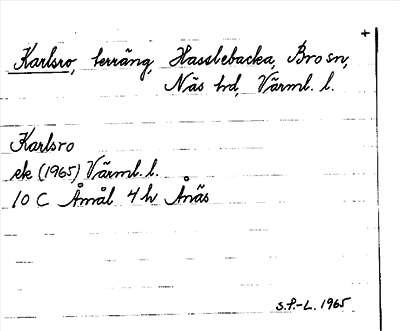 +
Karlsro, terräng, Hasslebacka, Bro sn,
Näs hd, Värml. l.
Karlsro
ek (1965) Värml. l.
10 C Åmål 4 h Ånäs
S.P.-L. 1965